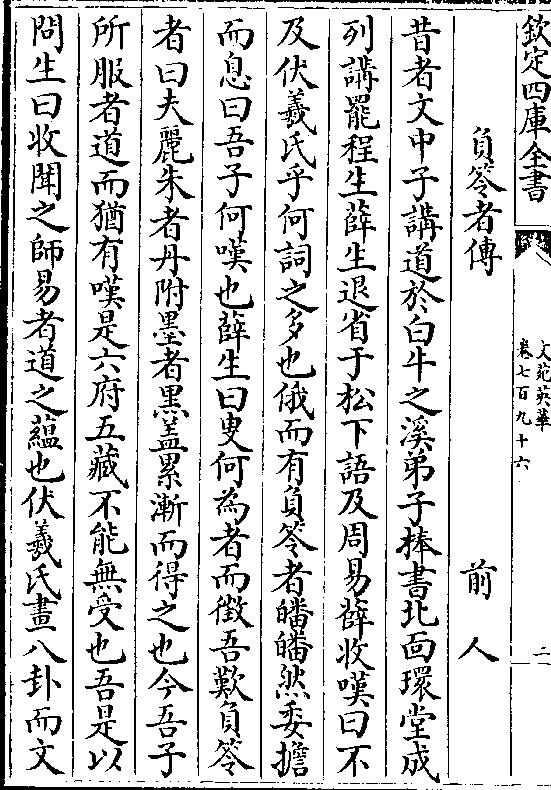 欽定四庫全書
文苑英華
卷七百九十六
二
負笭者傳 前人
昔者文中子講道於白牛之溪弟子捧書北面環堂成
列講罷程生薛生退省于松下語及周易薛收嘆曰不
及伏羲氏乎何詞之多也俄而有負笭者皤皤然委擔
而息曰吾子何嘆也薛生曰叟何為者而徵吾歎負笭
者曰夫麗朱者丹附墨者黑盖累漸而得之也今吾子
所服者道而猶有嘆是六府五藏不能無受也吾是以
問生曰收聞之師易者道之蘊也伏羲氏畫八卦而文